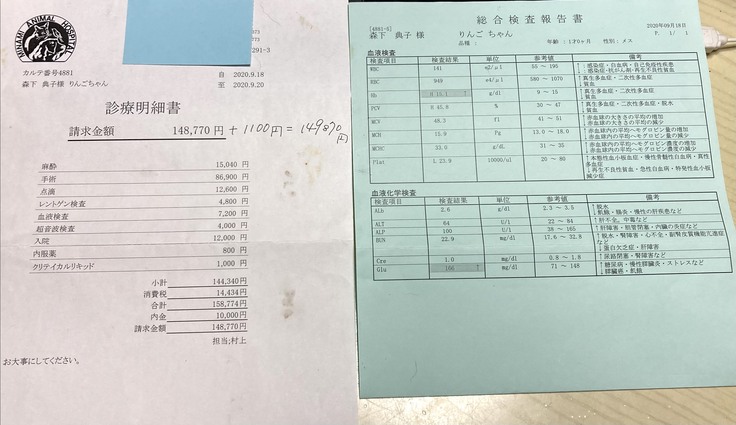 MINAMI ANIMAL HOSPITAL
291-3
カルテ番号4881
森下 典子様 りんごちゃん
自 2020.9.18
至 2020.9.20
診療明細書
請求金額 148,770 円 + 1100円 = 149870円
麻酔 15,040 円
手術 86,900 円
点滴 12,600 円
レントゲン検査 4,800 円
血液検査 7,200 円
超音波検査 4,000 円
入院 12,000 円
内服薬 800 円
クリテイカルリキッド 1,000 円
小計 144,340円
消費税 14,434円
合計 158,774円
内金 10,000円
請求金額 148,770円
担当:村上
お大事にしてください。
総合検査報告書
2020年09月18日
P. 1/ 1
[4881-2]
森下 典子 様 りんご ちゃん
品種: 年齢: 性別: メス
血液検査
検査項目 検査結果 単位 参考値 備考
WBC 141 55 ~ 196
↑:感染症・白血病・自己免疫性疾患
↓:感染症・抗がん剤・再生不良性貧血
RBC 949 580 ~ 1070 ↑真性多血症・二次性多血症
↓貧血
Hb H 15.1 ↑ g/dl 9 ~ 15 ↑真性多血症・二次性多血症
↓貧血
PCV H 45.8 % 30 ~ 47 ↑真性多血症・二次性多血症・脱水
↓貧血
MCV 48.3 fl 41 ~ 51 ↑赤血球の大きさの平均の増加
↓赤血球の大きさの平均の減少
MCH 15.9 Pg 13.0 ~ 18.0 ↑赤血球内の平均ヘモグロビン量の増加
↓赤血球内の平均ヘモグロビン量の減少
MCHC 33.0 g/dl 31 ~ 35 ↑赤血球内の平均ヘモグロビン濃度の増加
↓赤血球内の平均ヘモグロビン濃度の減少
Plat L 23.9 10000/ul 20 ~ 80 ↑本態性血小板血症・慢性骨髄性白血病・真性多血症
↓再生不良性貧血・急性白血病・特発性血小板減少症
血液化学検査
検査項目 検査結果 単位 参考値 備考
Alb 2.6 g/dl 2.3 ~ 3.5 ↑脱水
↓飢餓・腸炎・慢性の肝疾患など
ALT 64 U/l 22 ~ 84 ↑肝不全、中毒など
ALP 100 U/l 38 ~ 165 ↑肝障害・胆管閉塞・内臓の炎症など
BUN 22.9 mg/dl 17.6 ~ 32.8 ↑脱水・腎障害・心不全・副腎皮質機能亢進症など
↓蛋白欠乏症・肝障害
Cre 1.0 mg/dl 0.8 ~ 1.8 ↑尿路閉塞・腎障害など
Glu 166 ↑ mg/dl 71 ~ 148 ↑糖尿病・慢性膵臓炎・ストレスなど
↓膵臓癌・飢餓